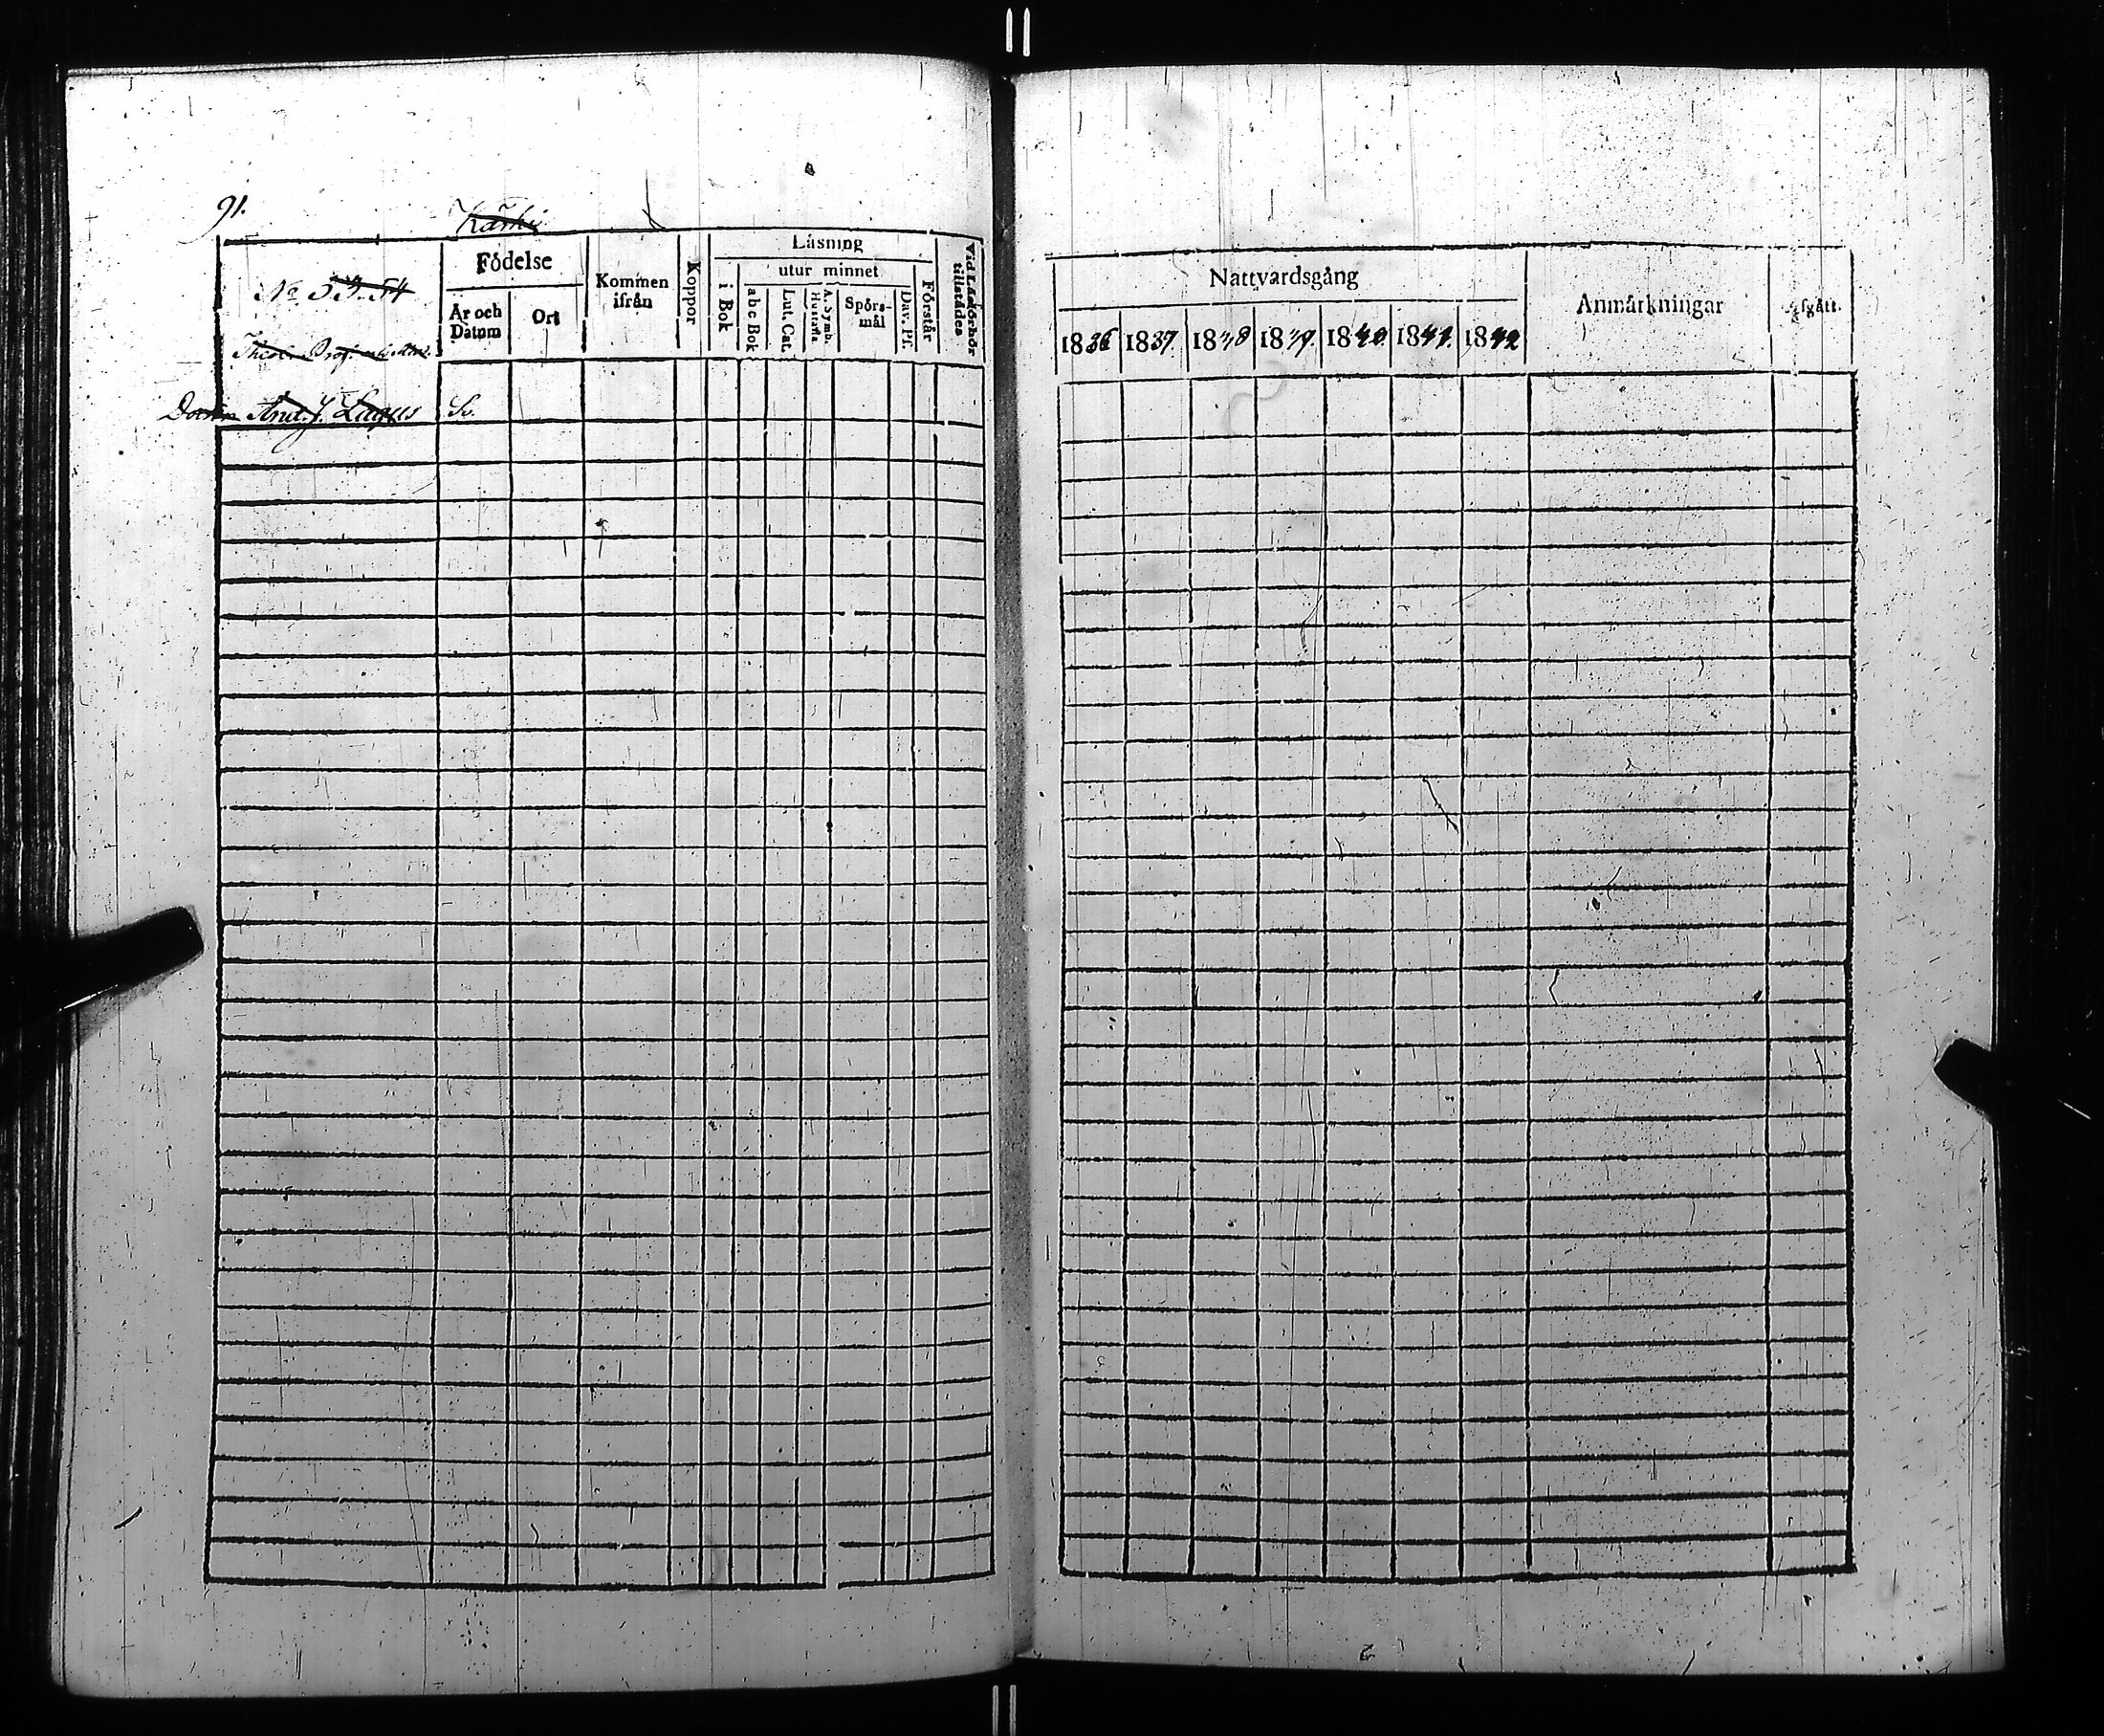 91.
Karki
No 53. 54
Theol. Prof.
And. J. Lagus
Födelse
År och Datum
Ort
Kommen ifrån
Koppor
Läsning
i Bok
utur minnet
abc Bok
Lut. Cat.
A. Symb. Hustafla
Spörsmål
Dav. Ps.
Förstår
Vid Läsförhör tillstädes
Nattvardsgång
1836 1837 1838 1839 1840 1841 1842
Anmärkningar